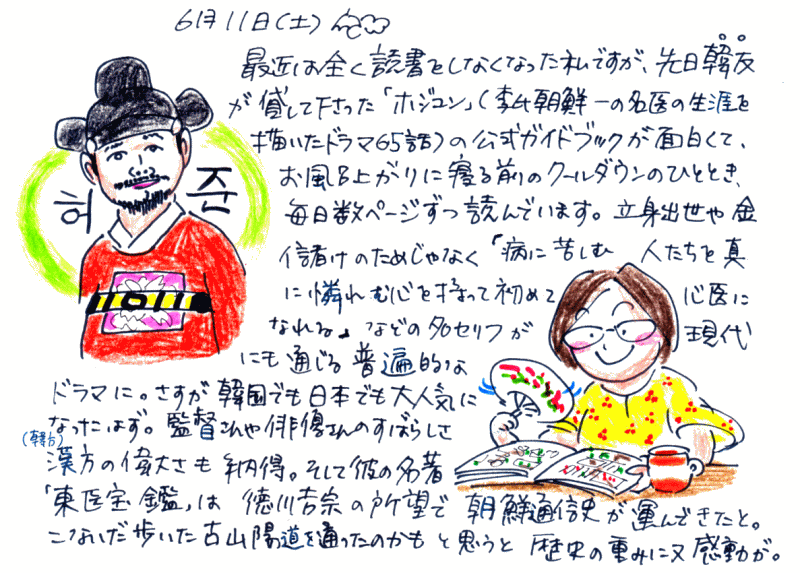 6月11日(土)
最近は全く読書をしなくなった私ですが、先日韓友
が貸して下さった「ホジュン」(李氏朝鮮一の名医の生涯を
描いたドラマ65話)の公式ガイドブックが面白くて、
お風呂上がりに寝る前のクールダウンのひととき、
毎日数ページずつ読んでいます。立身出世や金
儲けのためじゃなく「病に苦しむ 人たちを真
に憐れむ心を持って初めて 心医に
なれる」などの名セリフが 現代
にも通じる普遍的な
ドラマに。さすが韓国でも日本でも大人気に
なったはず。監督さんや俳優さんのすばらしさ
(韓方)
漢方の偉大さも納得。そして彼の名著
「東医宝鑑」は 徳川吉宗の所望で 朝鮮通信史が運んできたと。
こないだ歩いた古山陽道を通ったのかも と思うと 歴史の重みに又感動が。
허
준